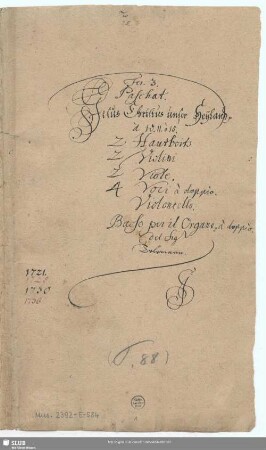 Fer. 3.
Paschat.
Jesus Christus unser Heyland
2 Hautbois
2 Violini
2 Viole.
4 Voci à doppio.
Violoncello.
Basso per il Organo, à doppio.
del Sig
Telemann.
1721.
1730
1736
(T. 88)
SLUB